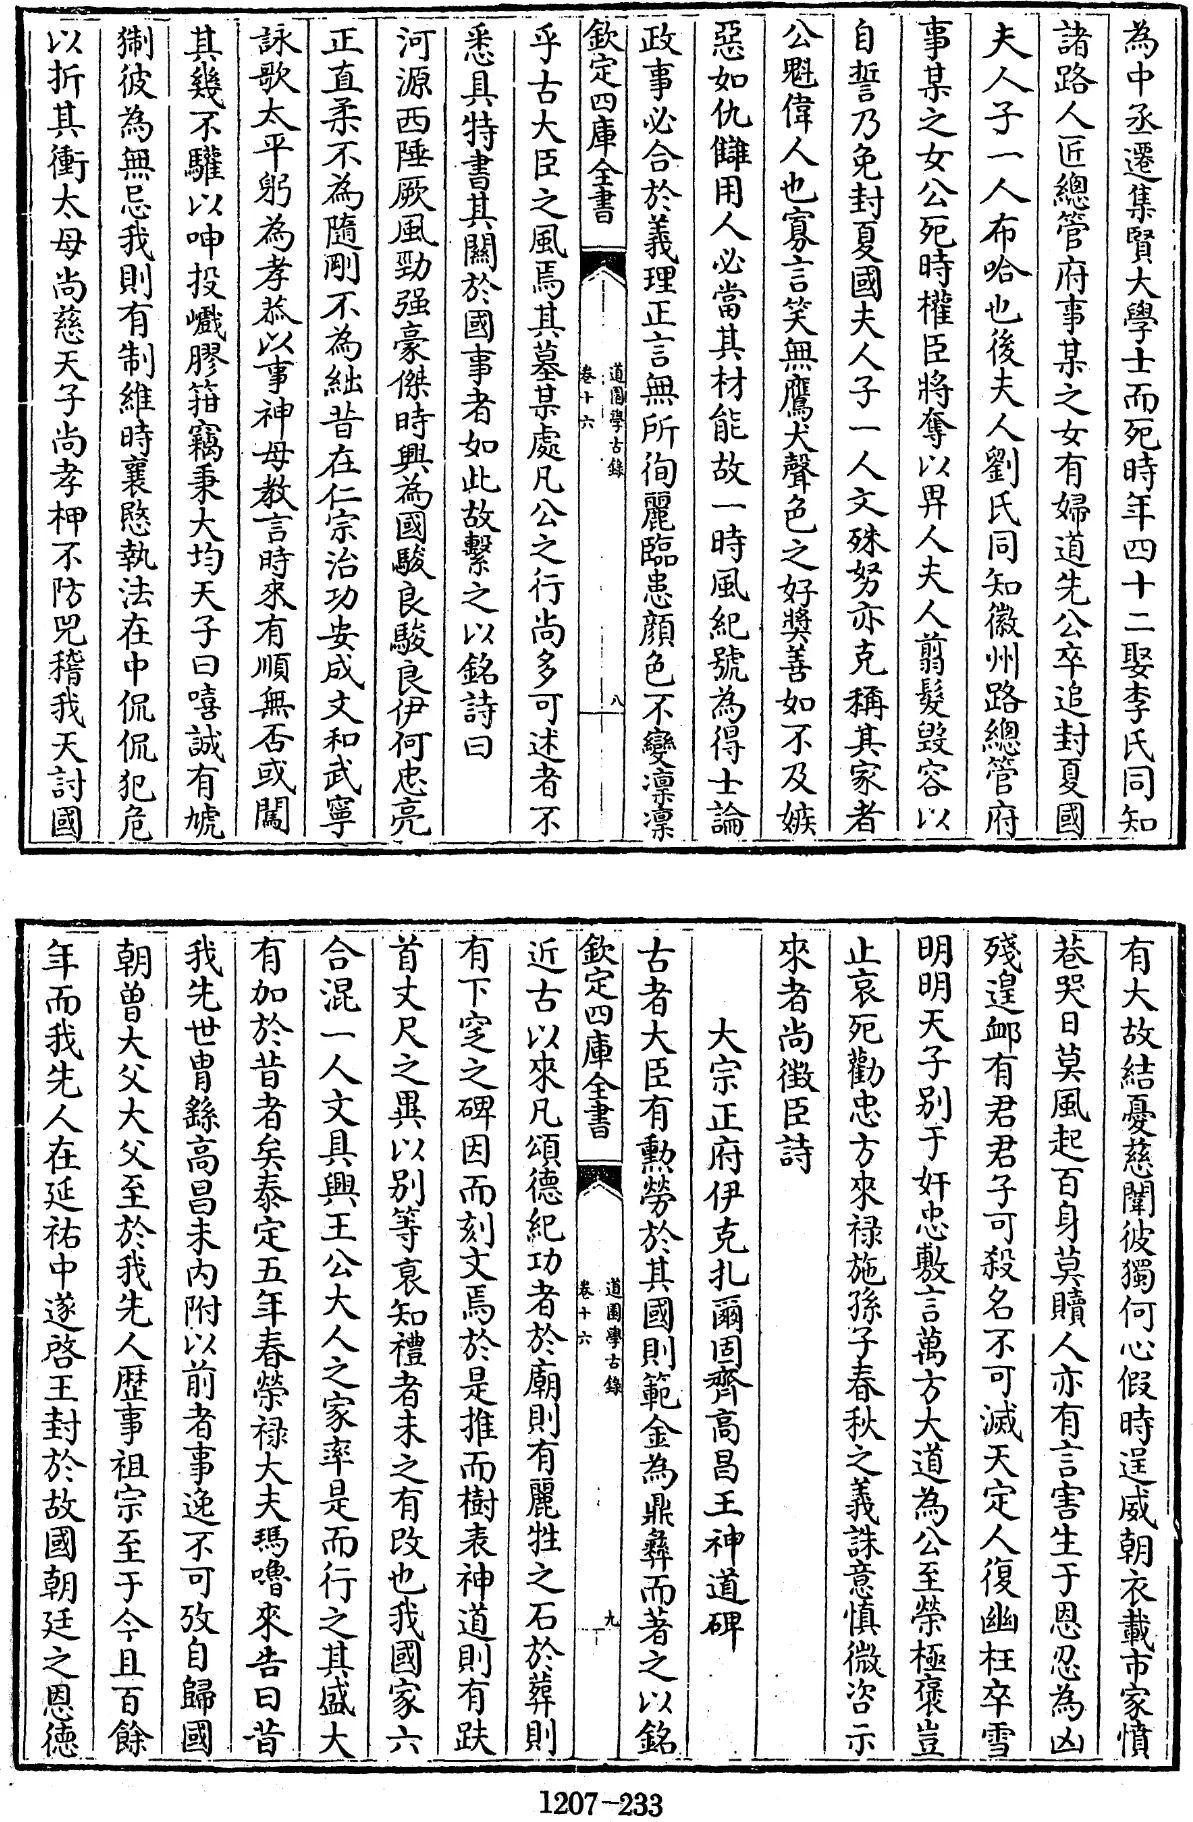 為中丞遷集賢大學士而死時年四十二娶李氏同知
諸路人匠總管府事某之女有婦道先公卒追封夏國
夫人子一人布哈也後夫人劉氏同知徽州路總管府
事某之女公死時權臣將奪以畀人夫人翦髮毀容以
自誓乃免封夏國夫人子一人文殊努亦克稱其家者
公魁偉人也寡言笑無鷹犬聲色之好奬善如不及嫉
惡如仇讎用人必當其材能故一時風紀號為得士論
政事必合於義理正言無所徇麗臨患顔色不變凛凛
欽定四庫全書
道園學古錄
卷十六
八
乎古大臣之風焉其墓某處凡公之行尚多可述者不
悉具特書其關於國事者如此故繫之以銘詩曰
河源西陲厥風勁强豪傑時興為國駿良駿良伊何忠亮
正直柔不為隨剛不為絀昔在仁宗治功安成文和武寧
詠歌太平躬為孝恭以事神母教言時來有順無否或闖
其幾不驩以呻投巇膠箝竊秉大均天子曰嘻誠有虓
猘彼為無忌我則有制維時襄愍執法在中侃侃犯危
以折其衝太母尚慈天子尚孝柙不防兕稽我天討國
有大故結憂慈闈彼獨何心假時逞威朝衣載市家憤
巷哭日莫風起百身莫贖人亦有言害生于恩忍為凶
殘遑卹有君君子可殺名不可滅天定人復幽枉卒雪
明明天子别于奸忠敷言萬方大道為公至榮極襃豈
止哀死勸忠方來禄施孫子春秋之義誅意慎微咨示
來者尚徴臣詩
大宗正府伊克扎爾固齊高昌王神道碑
古者大臣有勳勞於其國則範金為鼎彝而著之以銘
欽定四庫全書
道園學古錄
卷十六
九
近古以來凡頌德紀功者於廟則有麗牲之石於葬則
有下窆之碑因而刻文焉於是推而樹表神道則有趺
首丈尺之異以别等衰知禮者未之有改也我國家六
合混一人文具興王公大人之家率是而行之其盛大
有加於昔者矣泰定五年春榮禄大夫瑪嚕來告曰昔
我先世胄繇高昌未内附以前者事逸不可攷自歸國
朝曾大父大父至於我先人歴事祖宗至于今且百餘
年而我先人在延祐中遂啓王封於故國朝廷之恩德
1207-233